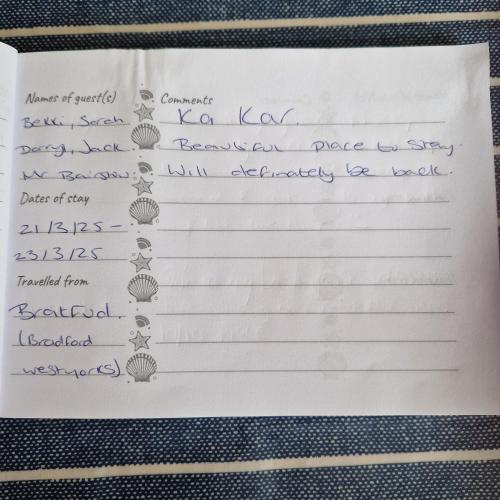 Names of guest(s)
Bekki, Sarah
Darryl, Jack
Mr Bairstow.
Dates of stay
21/3/25 –
23/3/25
Travelled from
Bratfud.
(Bradford
westyorks)
Comments
Ka Kar.
Beautiful place to stay.
Will definately be back.